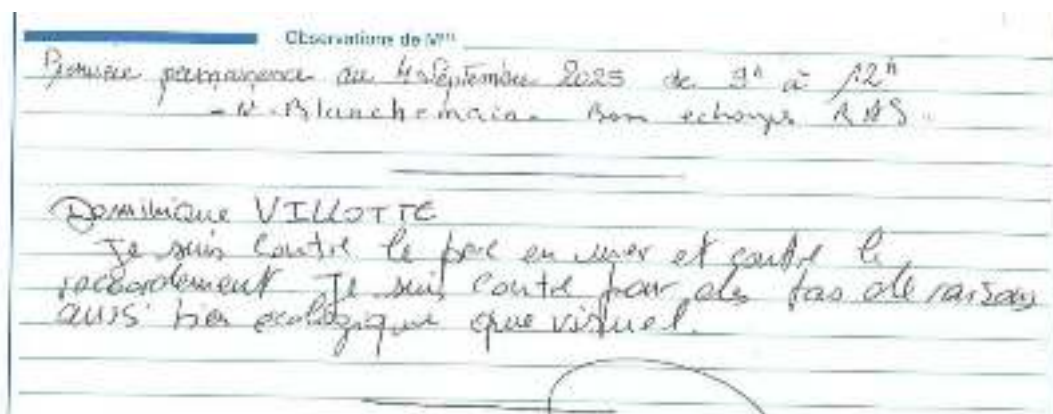 Observations de Mme
Première permanence du 4 Septembre 2025 de 9h à 12h
- N. Blanchemain. Bon echange RAS.
Dominique VILLOTTE
Je suis contre le parc en mer et contre le
raccordement Je suis contre pour des tas de raisons
aussi bien ecologique que visuel.